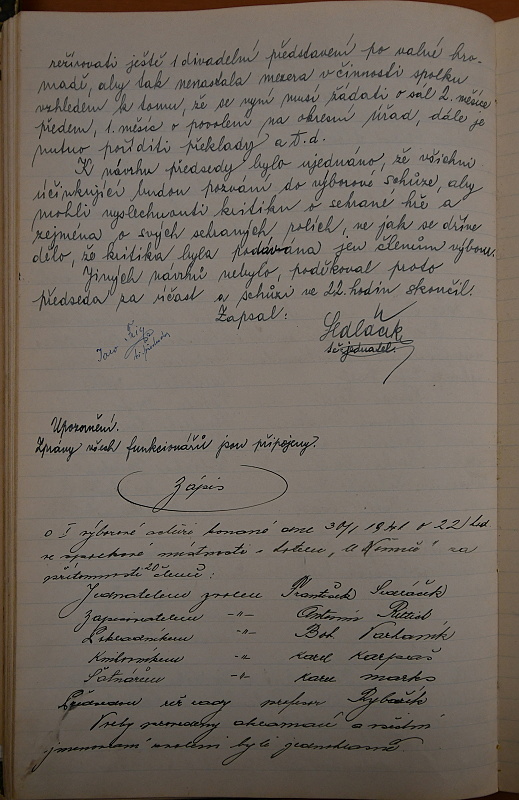 režírovati ještě 1 divadelní představení po valné hro-
madě, aby tak nenastala mezera v činnosti spolku
vzhledem k tomu, že se nyní musí žádati o sál 2. měsíce
předem, 1. měsíc o povolení na okresní úřad, dále je
nutno pořídití překlady a t. d.
K návrhu předsedy bylo ujednáno, že všichni
účinkující budou pozváni do výborové schůze, aby
mohli vyslechnouti kritiku o sehrané hře a
zejména o svých sehraných rolích, ne jak se dříve
dělo, že kritika byla podávána jen členům výboru.
Jiných návrhů nebylo, poděkoval proto
předseda za účast a schůzi ve 22. hodin skončil.
Zapsal:
Sedláček
t.č. jednatel.
Upozornění.
Zprávy všech funkcionářů jsou připojeny.
Zápis
o I výborové schůzi konané dne 30/1 1941 o 22 hod
ve spolkové místnosti v hotelu „U Němců“ za
přítomnosti 20 členů:
Jednatelem zvolen František Sedláček
Zapisovatelem -"- Antonín
Pokladníkem -"- Boh.
Knihovníkem -"- Karel Karpaš
Šatnářem -"- Karel
Předsedou rež. rady profesor Rybáček
Volby provedeny aklamací a
jmenovaní zvoleni byli jednohlasně.